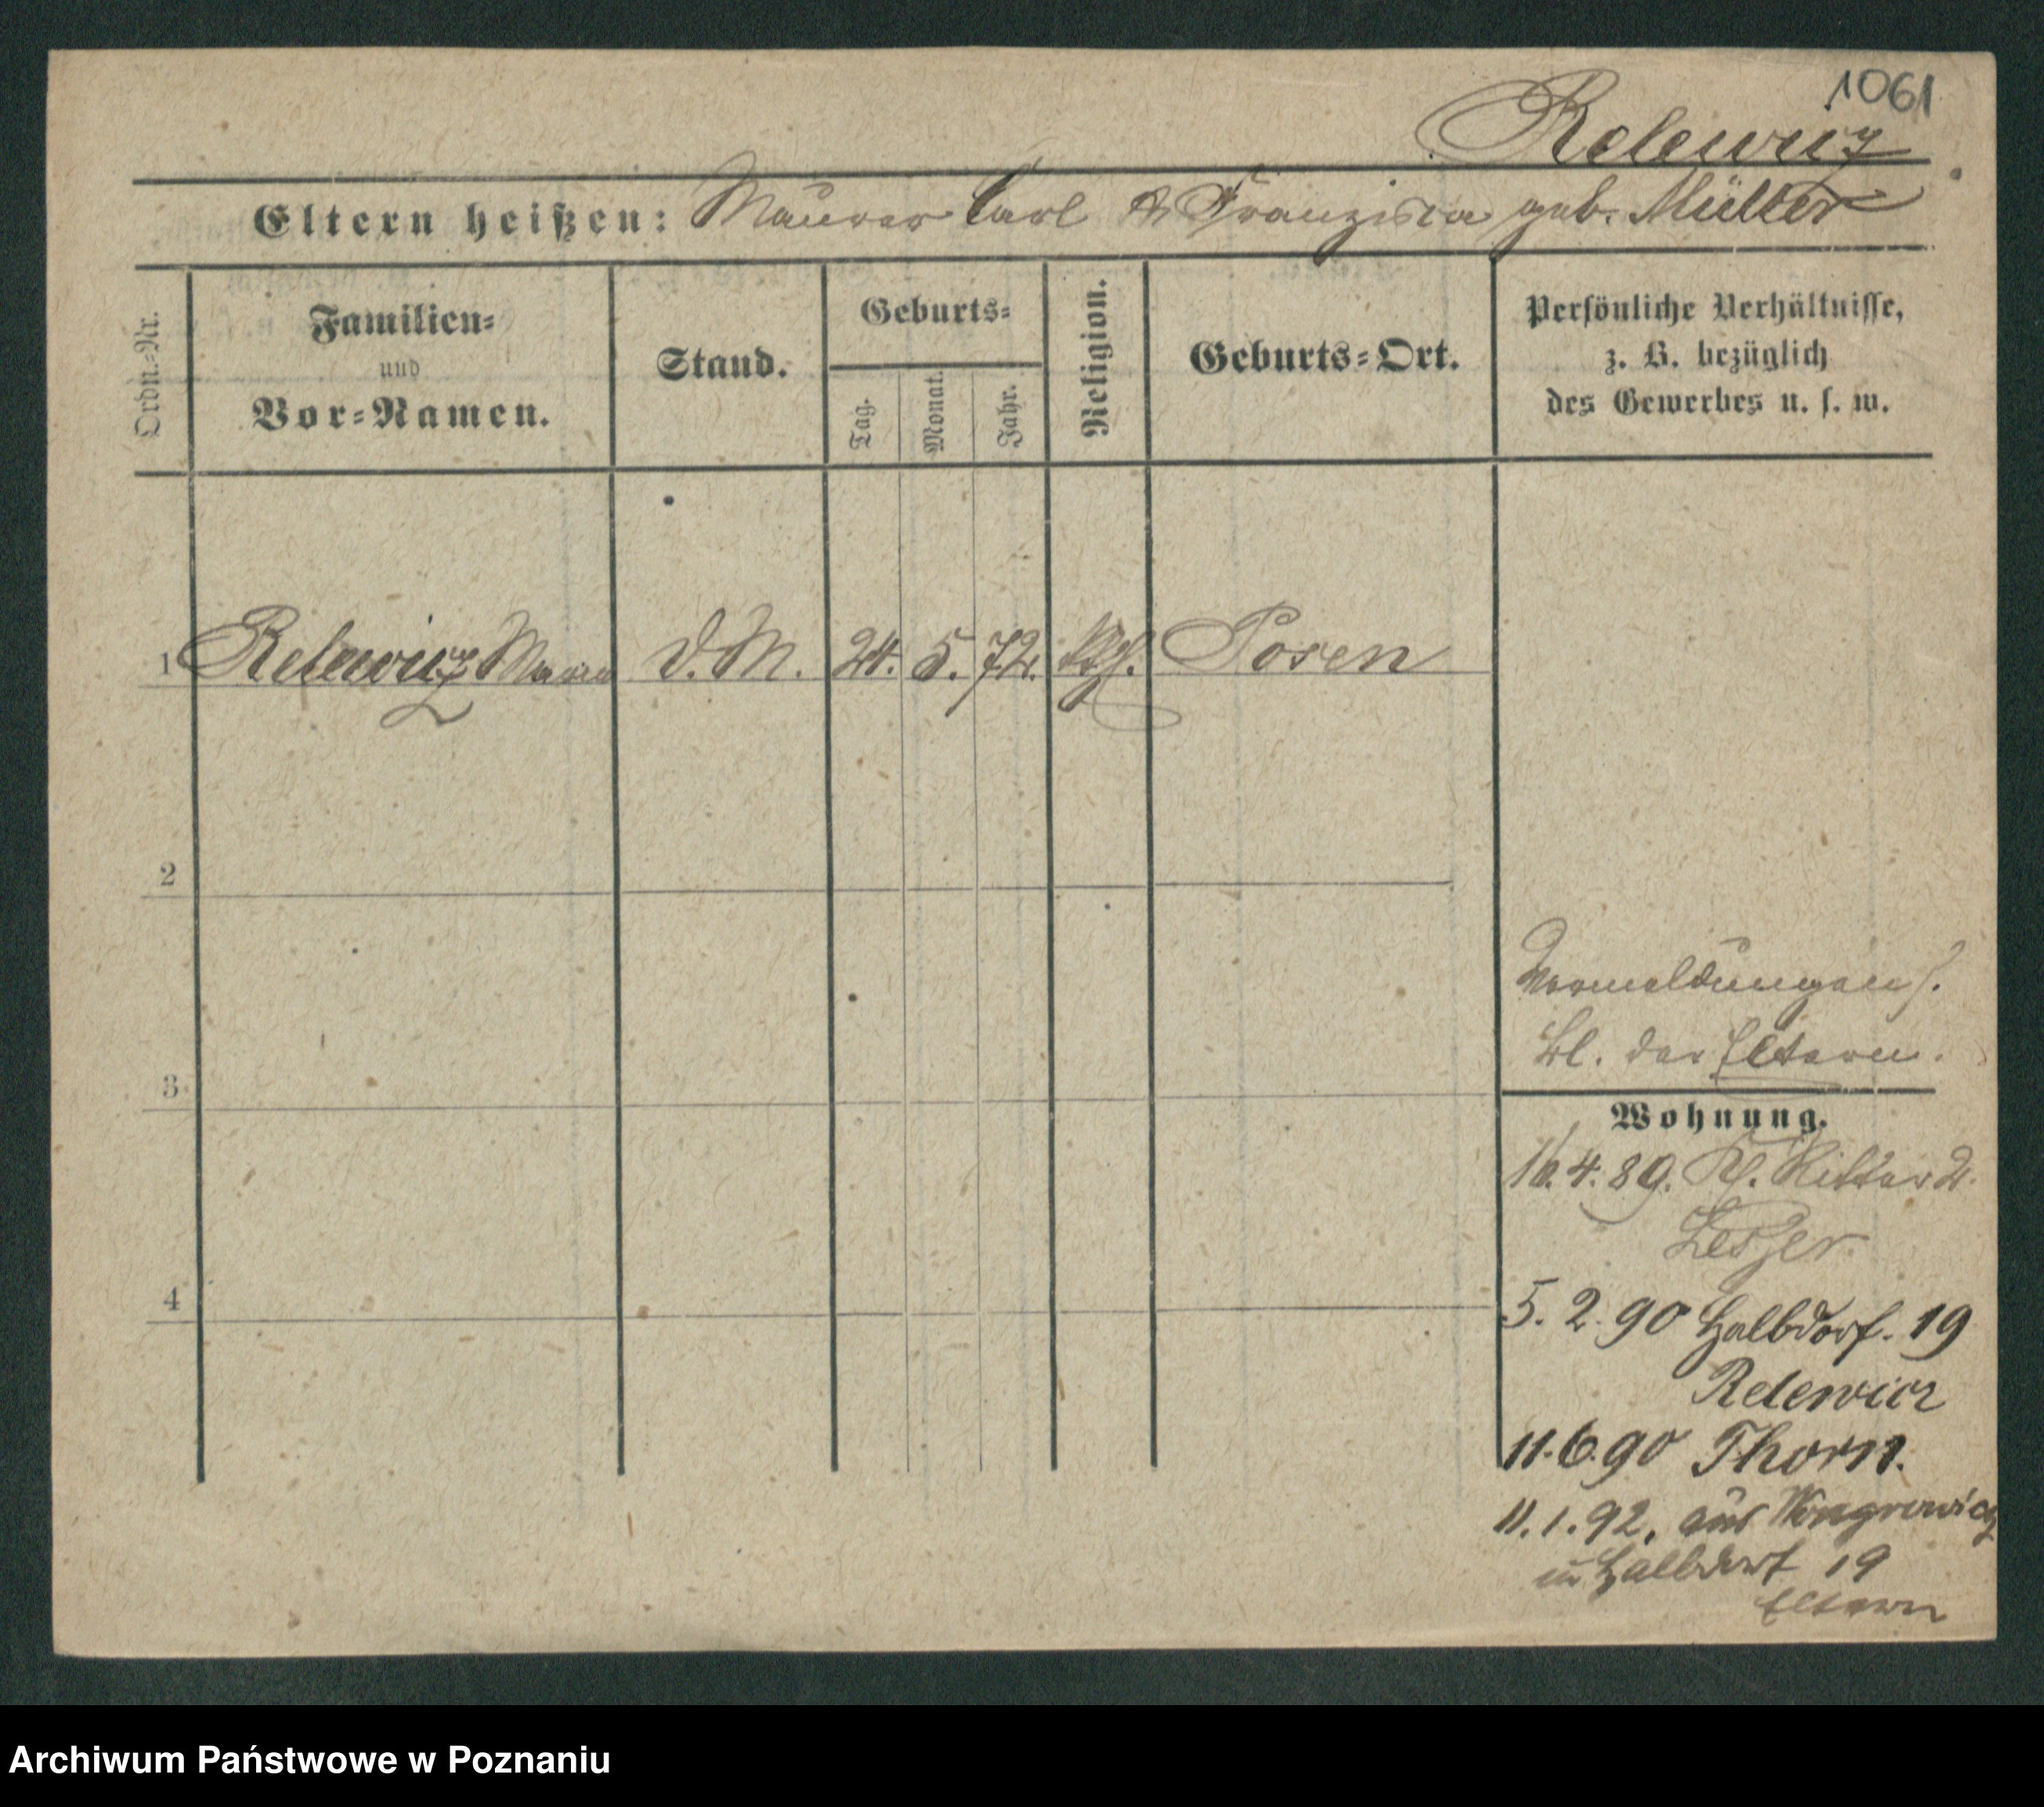 1061
Relewicz
Eltern heißen: Maurer Carl & Franziska geb. Müller
Ordn.=Nr.
Familien=
und
Vor=Namen.
Stand.
Geburts=
Tag.
Monat.
Jahr.
Religion.
Geburts=Ort.
Persönliche Verhältnisse,
z. B. bezüglich
des Gewerbes u. s. w.
1 Relewicz D. M. 24. 5. 72. Posen
2
3
4
Vormeldungen s.
Bl. der Eltern.
Wohnung.
16. 4. 89. Kl. Ritter 2.
Leszer
5. 2. 90 Halbdorf. 19
Relewicz
11. 6. 90 Thorn.
11. 1. 92. aus Wongrowicz
n. Halbdorf 19
Eltern
Archiwum Państwowe w Poznaniu